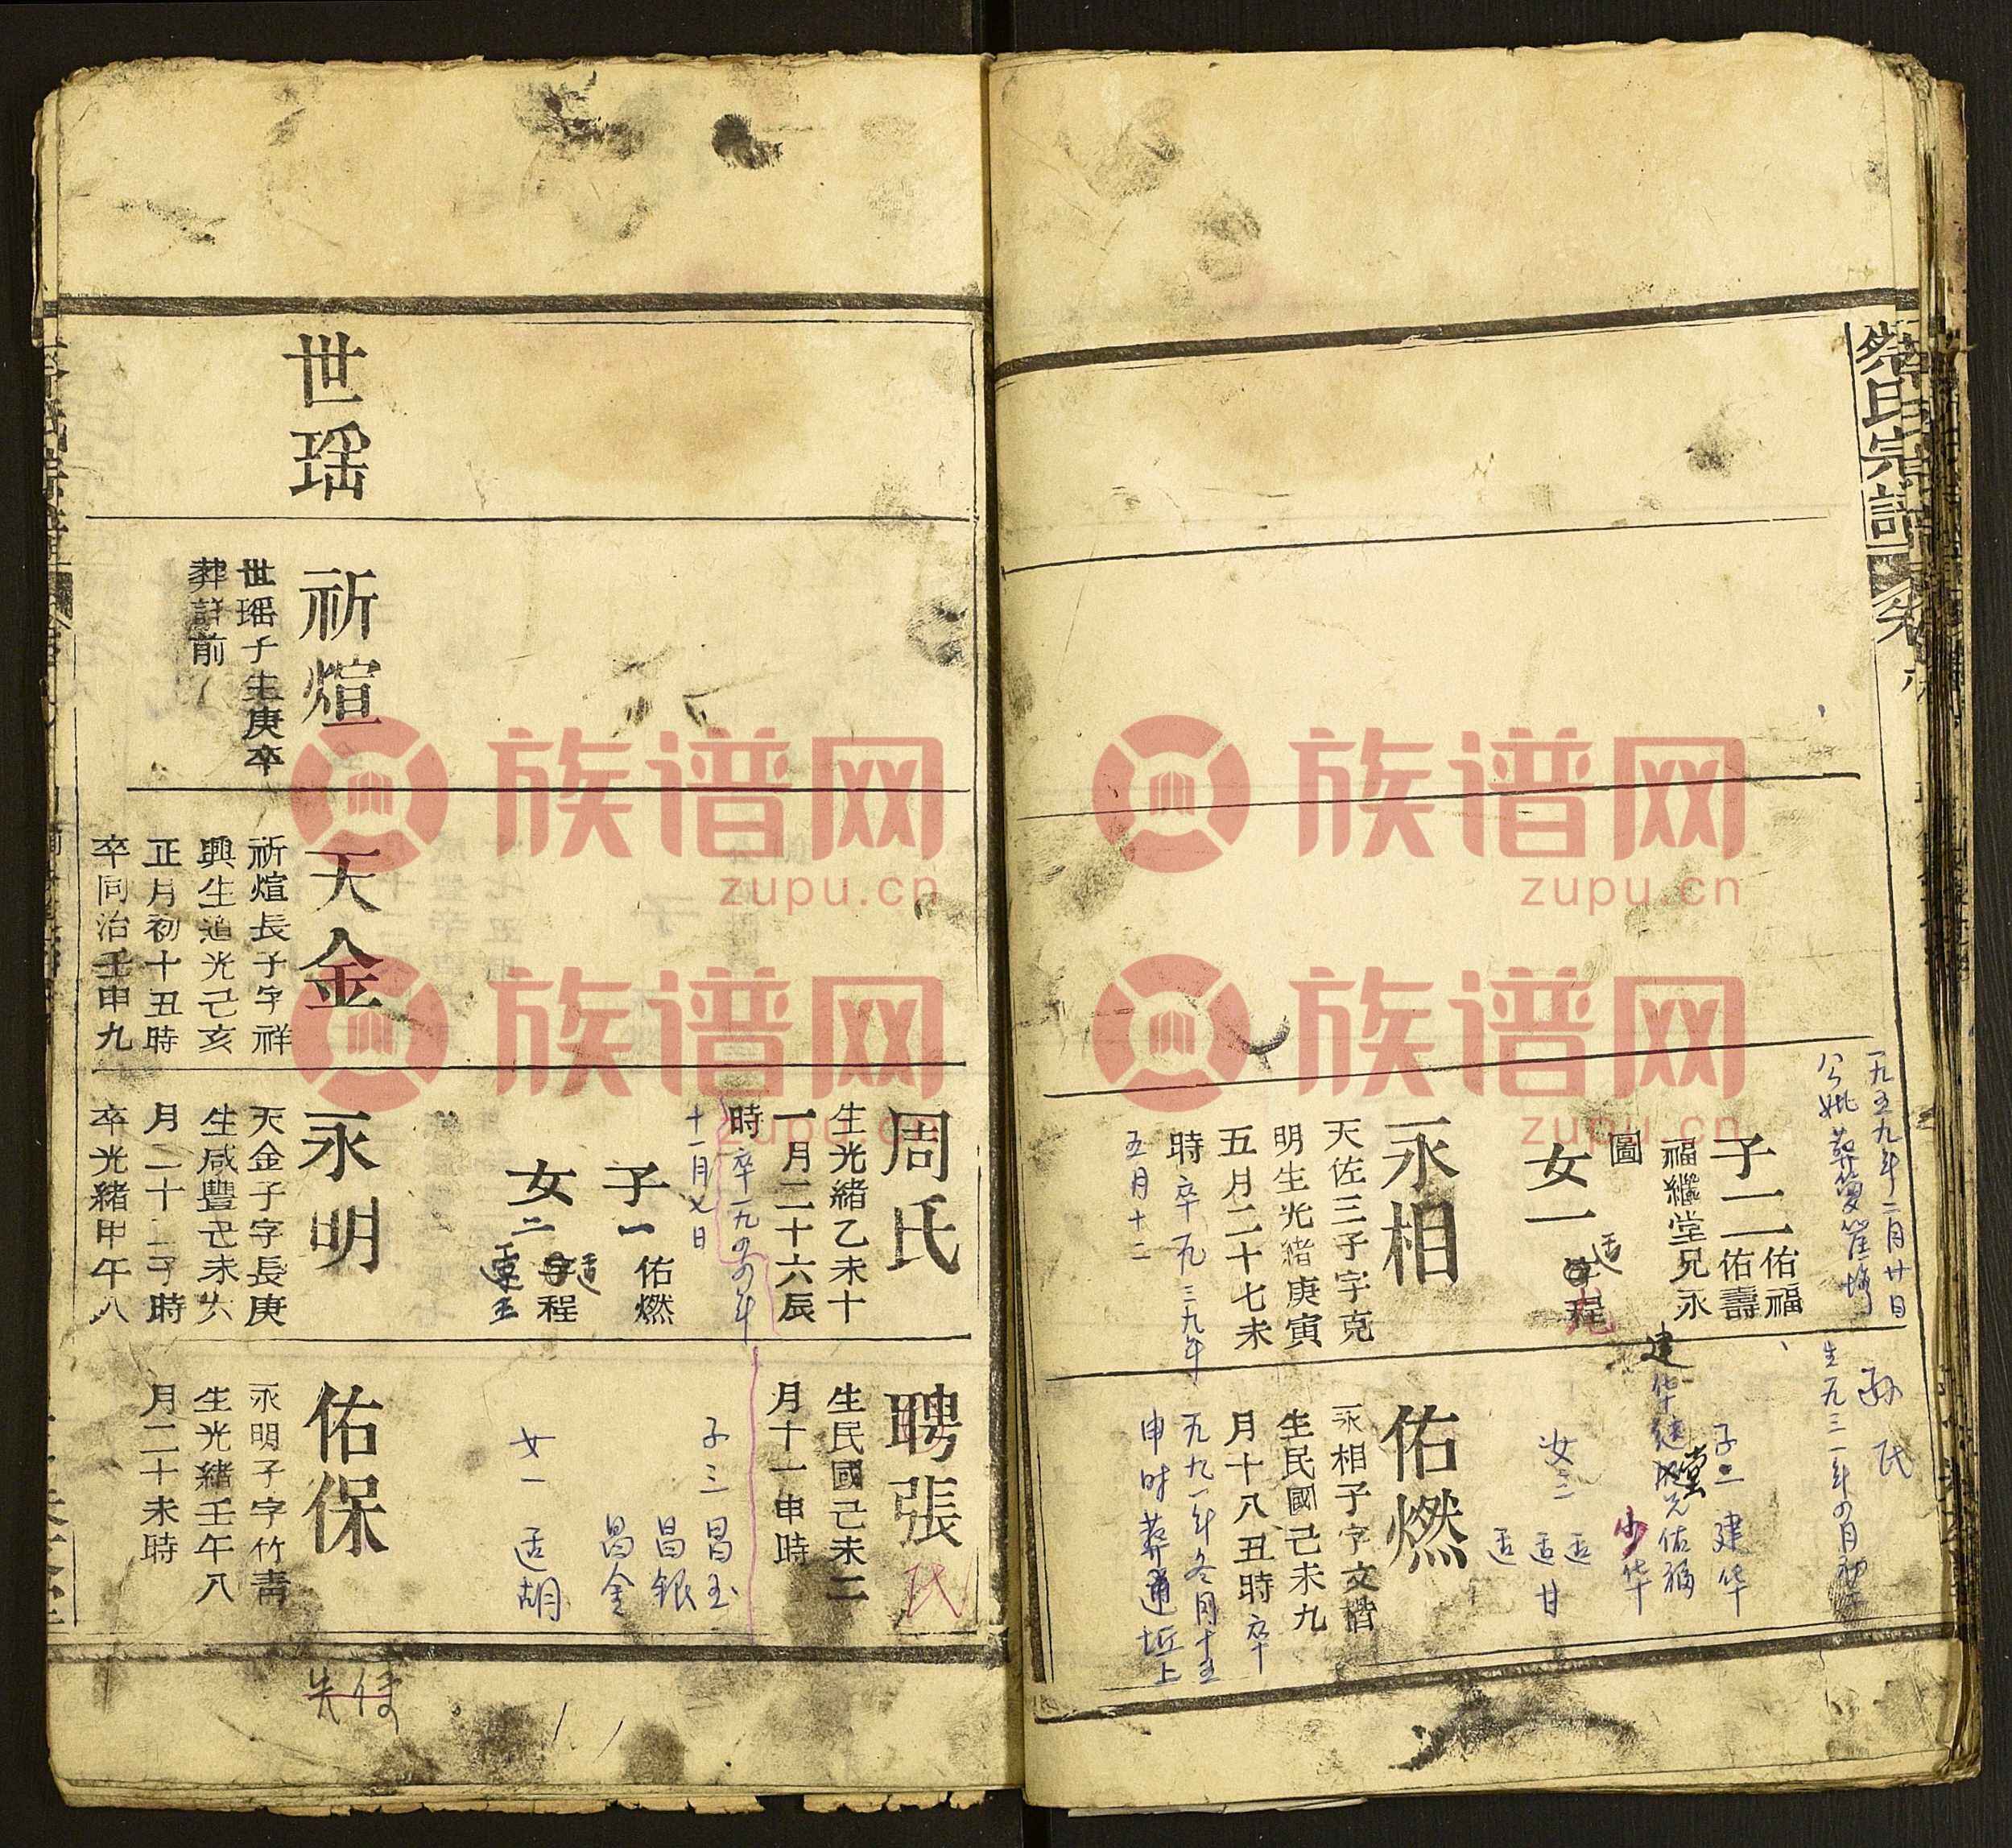 氏宗譜
卷
一九五九年二月廿日
公妣葬
子二
佑福
佑壽
福繼堂兄永
圖
女一
适
程
永相
天佐三子字克
明生光緒庚寅
五月二十七未
時卒一九三九年
五月十二
孙氏
生一九三一年四月初
子二 建华
少华
建华继堂兄佑福
女三
适
适甘
适
佑燃
永相子字文楷
生民國己未九
月十八丑時卒
一九九一年冬月十五
申时葬通坵上
周氏
生光緒乙未十
一月二十六辰
時卒一九四四年
十一月七日
子一
佑燃
女二
适
字程
聘張氏
生民國己未二
月十一申時
子三 昌玉
昌銀
昌金
女一 适胡
世瑶
祈煊
世瑶子生庚卒
葬詳前
天金
祈煊長子字祥
興生道光己亥
正月初十丑時
卒同治壬申九
永明
天金子字長庚
生咸豐己未六
月二十二子時
卒光緒甲午八
佑保
永明子字竹青
生光緒壬午八
月二十未時
族谱网
zupu.cn
族谱网
zupu.cn
族谱网
zupu.cn
族谱网
zupu.cn